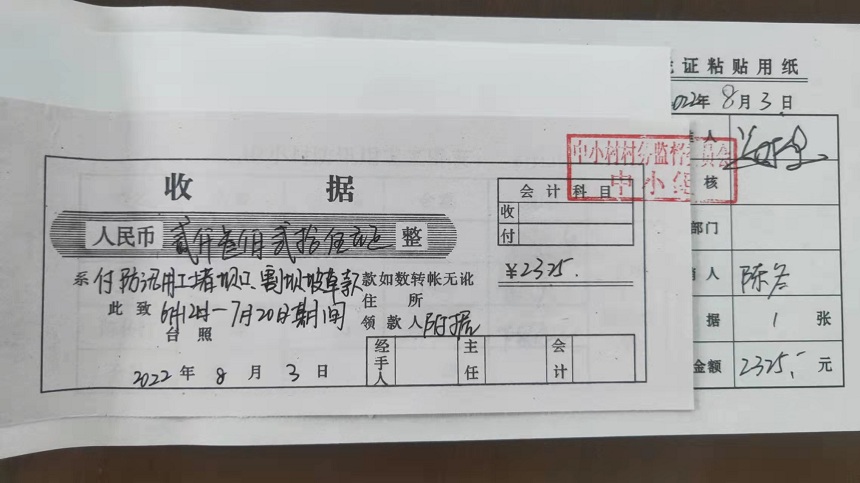 收 据
人民币 贰仟叁佰贰拾伍元 整
系付防汛用工堵坝口、割坝坡草款 款如数转帐无讹
此致 6月12日-7月20日期间 住 所
台照 领款人 附据
2022年8月3日
经手人 主任 会计
会计科目
收
付
¥2325.
证粘贴用纸
2022年8月3日
人
中小村村务监督委员会
核
部门
人
据 1 张
金额 2325.- 元